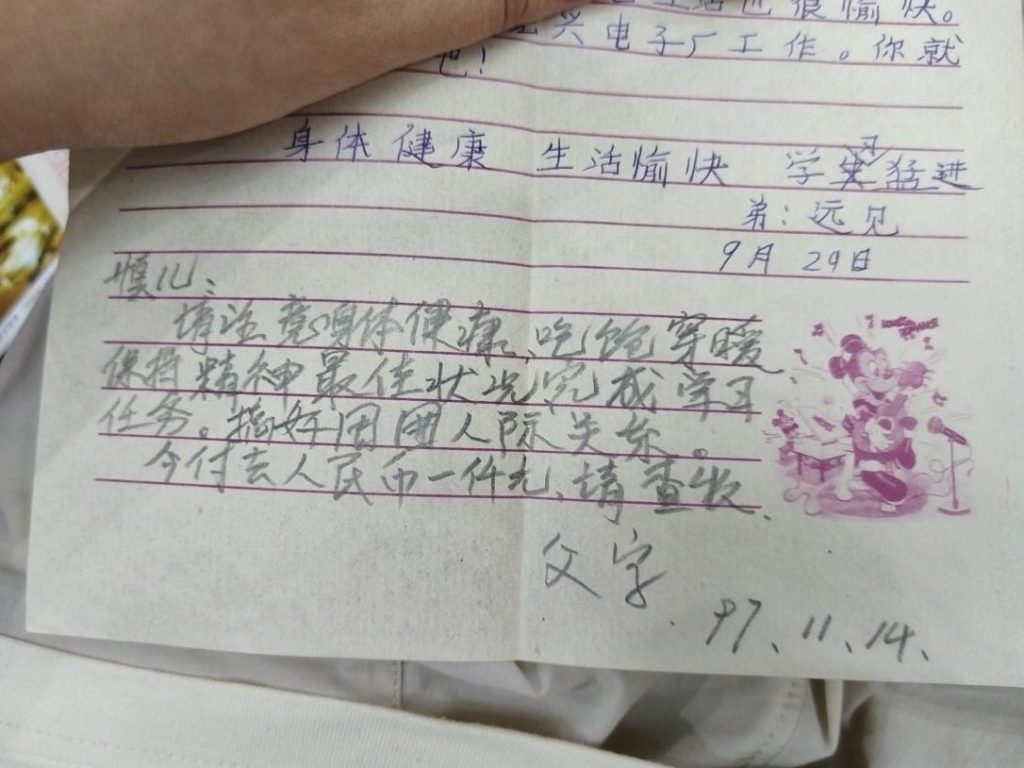 生活也很愉快。
兴电子厂工作。你就
吧！
身体健康 生活愉快 学习猛进
弟：远见
9月29日
儿：
请注意身体健康、吃饱穿暖、
保持精神最佳状况，完成学习
任务。搞好周围人际关系。
今付去人民币一仟元、请查收、
父字
97、11、14、